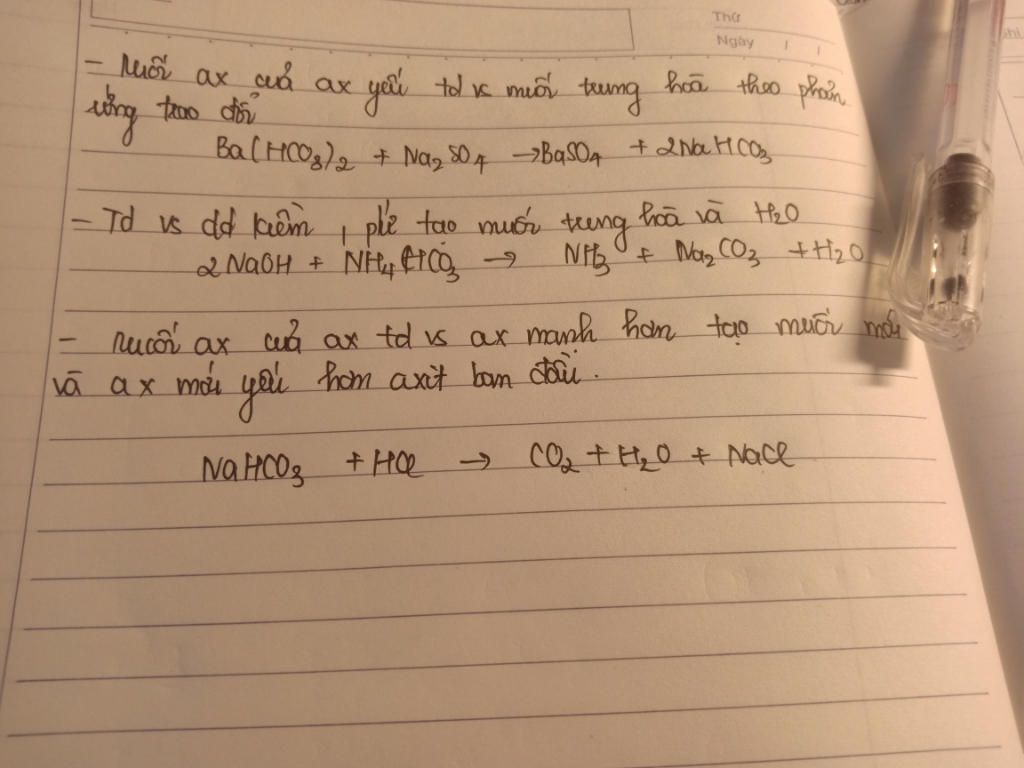 Thứ
Ngày / /
- Muối ax của ax yếu td vs muối trung hoà theo phản
ứng trao đổi
Ba(HCO3)2 + Na2SO4 → BaSO4 + 2NaHCO3
- Td vs dd kiềm, pứ tạo muối trung hoà và H2O
2NaOH + NH4HCO3 → NH3 + Na2CO3 + H2O
- Muối ax của ax td vs ax mạnh hơn tạo muối mới
và ax mới yếu hơn axit ban đầu.
NaHCO3 + HCl → CO2 + H2O + NaCl